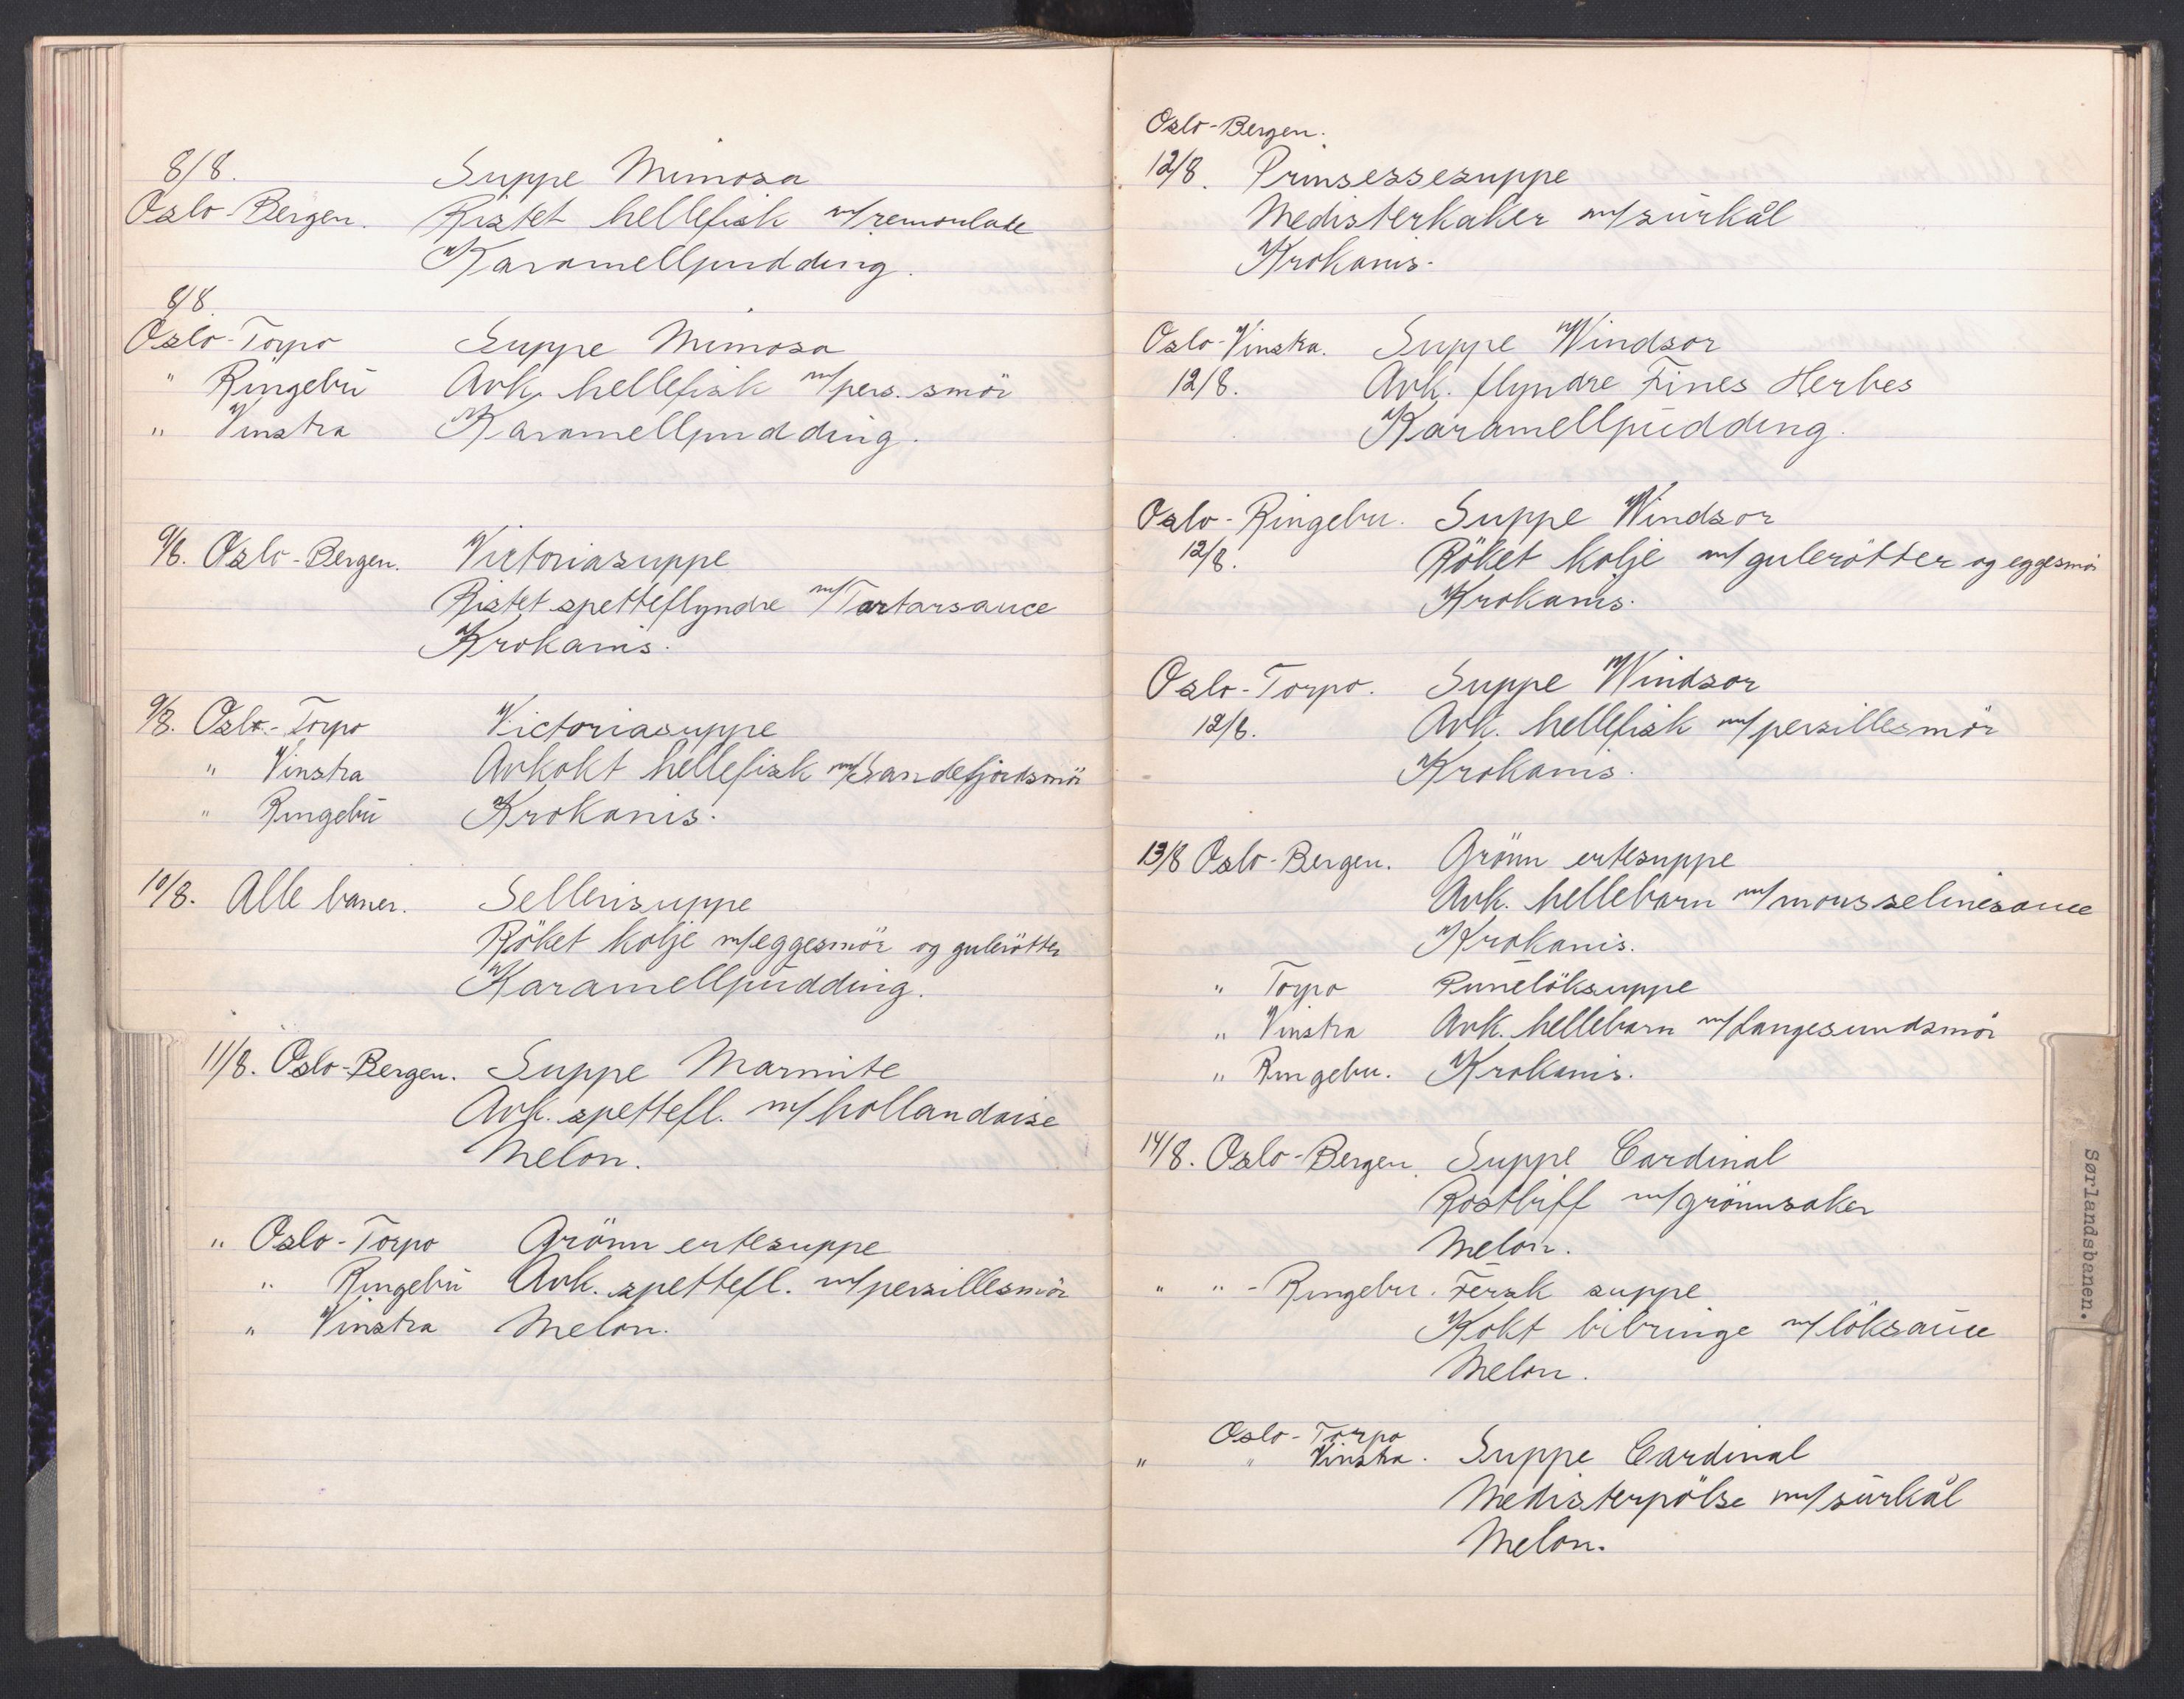 8/8. Suppe Mimosa
Oslo-Bergen. Ristet hellefisk m/remoulade
Karamellpudding.
8/8.
Oslo-Torpo Suppe Mimosa
" Ringebu Avk. hellefisk m/pers. smör
" Vinstra Karamellpudding.
9/8. Oslo-Bergen. Victoriasuppe
Ristet spetteflyndre m/Tartarsauce
Krokanis.
9/8. Oslo-Torpo Victoriasuppe
" Vinstra Avkokt hellefisk m/Sandefjordsmör
" Ringebu Krokanis.
10/8. Alle baner. Sellerisuppe
Röket kolje m/eggesmör og gulerötter
Karamellpudding.
11/8. Oslo-Bergen. Suppe Marmite
Avk. spettefl. m/hollandaise
Melon.
" Oslo-Torpo Grönn ertesuppe
" Ringebu Avk. spettefl. m/persillesmör
" Vinstra Melon.
Oslo-Bergen.
12/8. Prinsessesuppe
Medisterkaker m/surkål
Krokanis.
Oslo-Vinstra. Suppe Windsor
12/8. Avk. flyndre Fines Herbes
Karamellpudding.
Oslo-Ringebu. Suppe Windsor
12/8. Röket kolje m/gulerötter og eggesmör
Krokanis.
Oslo-Torpo. Suppe Windsor
12/8. Avk. hellefisk m/persillesmör
Krokanis.
13/8 Oslo-Bergen. Grönn ertesuppe
Avk. hellebarn m/mousselinesauce
Krokanis.
" Torpo Purrelöksuppe
" Vinstra Avk. hellebarn m/Langesundsmör
" Ringebu. Krokanis.
14/8. Oslo-Bergen. Suppe Cardinal
Rostbiff m/grönnsaker
Melon.
" " - Ringebu. Fersk suppe
Kokt bibringe m/löksauce
Melon.
Oslo-Torpo
" " Vinstra. Suppe Cardinal
Medisterpölse m/surkål
Melon.
Sørlandsbanen.